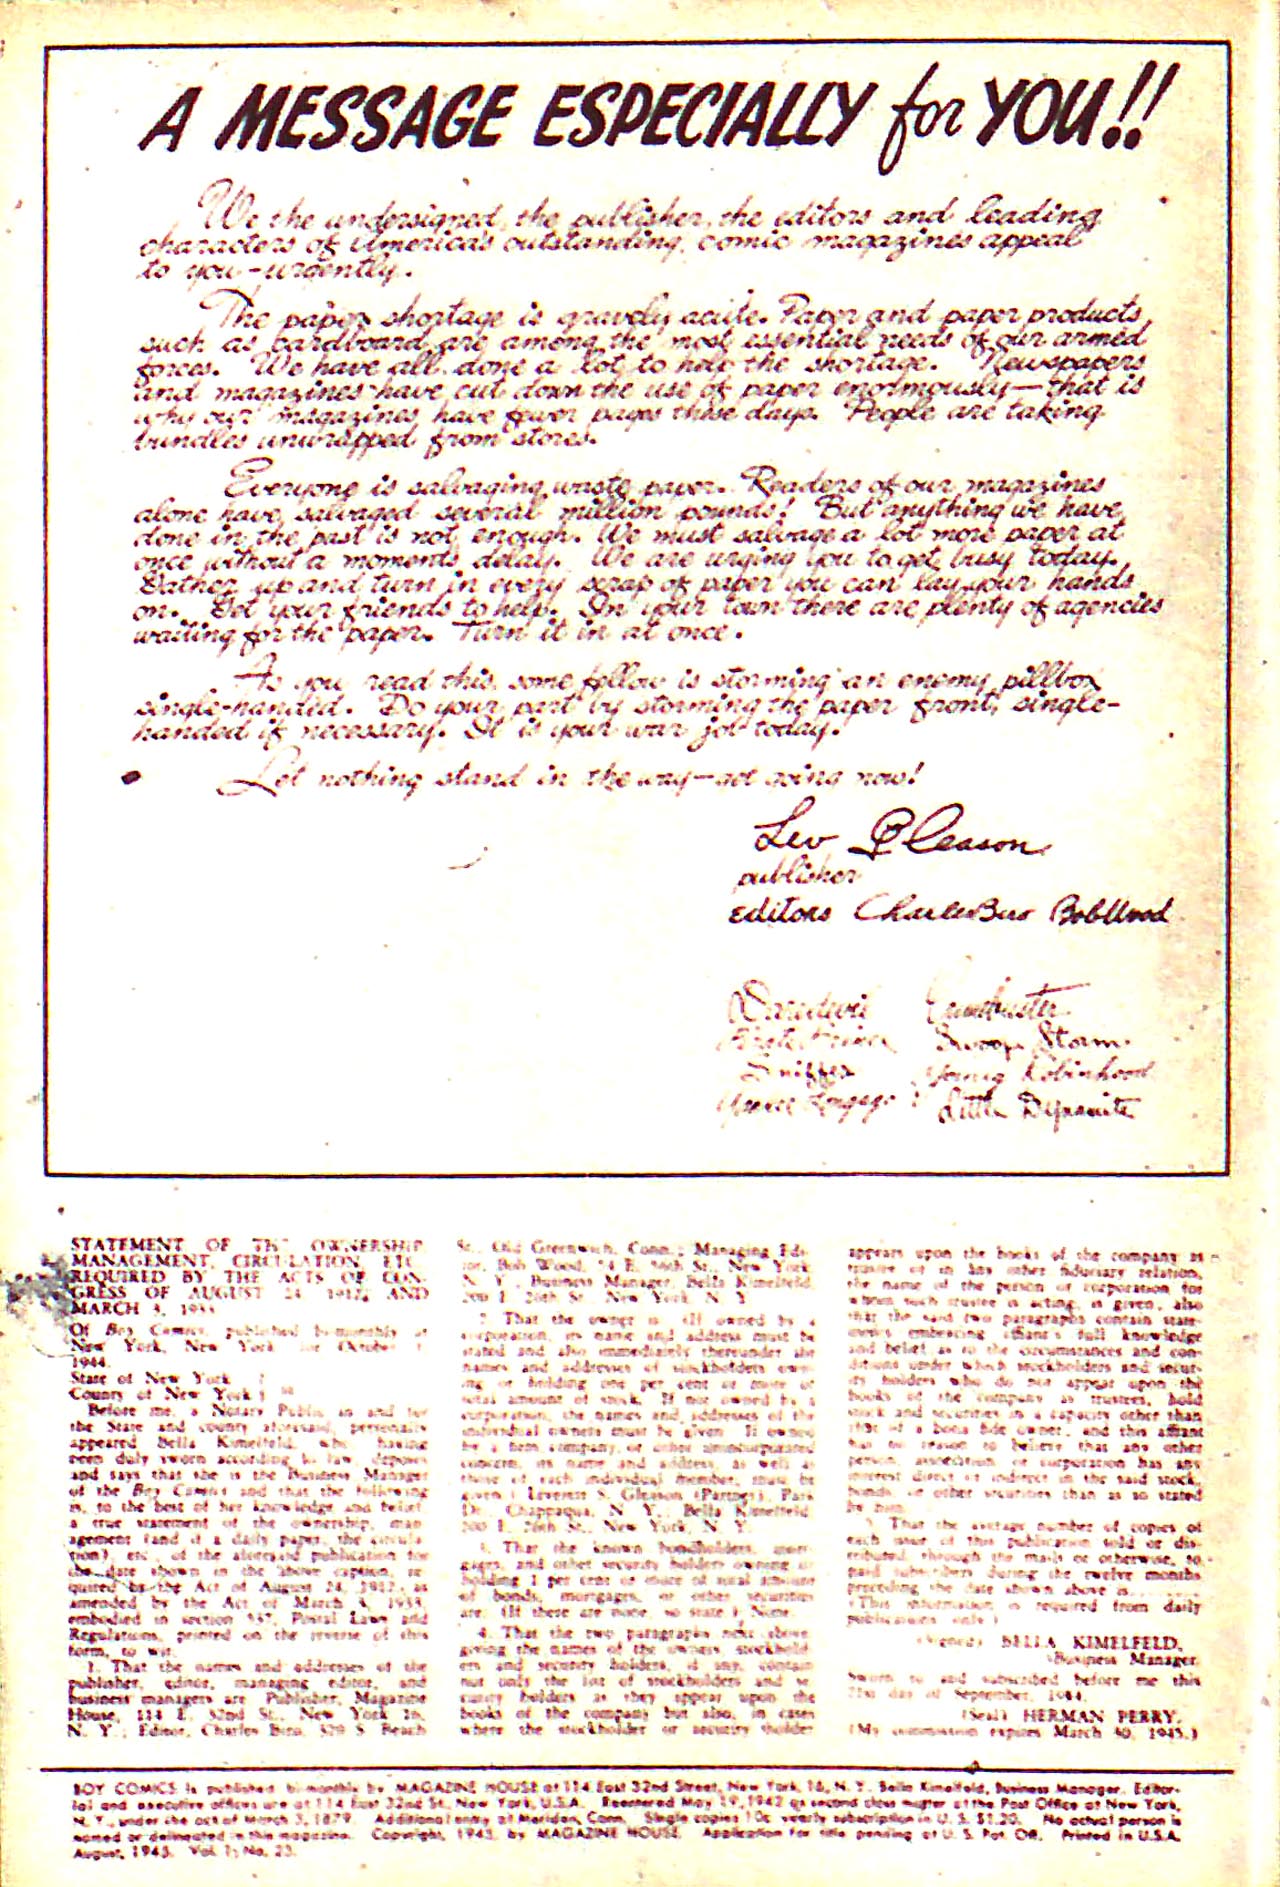 A MESSAGE ESPECIALLY for YOU!!
We the undersigned, the publisher, the editors and leading
characters of America's outstanding comic magazines appeal
to you - urgently.
The paper shortage is gravely acute. Paper and paper products,
such as cardboard are among the most essential needs of our armed
forces. We have all done a lot to help the shortage. Newspapers
and magazines have cut down the use of paper enormously — that is
why our magazines have fewer pages these days. People are taking
bundles unwrapped from stores.
Everyone is salvaging waste paper. Readers of our magazines
alone have salvaged several million pounds! But anything we have
done in the past is not enough. We must salvage a lot more paper at
once without a moments delay. We are urging you to get busy today.
Gather up and turn in every scrap of paper you can lay your hands
on. Get your friends to help. In your town there are plenty of agencies
waiting for the paper. Turn it in at once.
As you read this, some fellow is storming an enemy pillbox
single-handed. Do your part by storming the paper front, single-
handed if necessary. It is your war job today!
Let nothing stand in the way — get going now!
Lev Gleason
publisher
editors Charles Biro Bob Wood
Daredevil Crimebuster
Swoop Storm
Sniffer Young Robinhood
Little Dynamite
STATEMENT OF THE OWNERSHIP,
MANAGEMENT, CIRCULATION, ETC.
REQUIRED BY THE ACTS OF CON-
GRESS OF AUGUST 24, 1912, AND
MARCH 3, 1933
Of Boy Comics, published bi-monthly at
New York, New York for October 1,
1944.
State of New York
County of New York } ss
Before me, a Notary Public in and for
the State and county aforesaid, personally
appeared Bella Kimelfeld, who, having
been duly sworn according to law, deposes
and says that she is the Business Manager
of the Boy Comics and that the following
is, to the best of her knowledge and belief,
a true statement of the ownership, man-
agement (and if a daily paper, the circula-
tion), etc., of the aforesaid publication for
the date shown in the above caption, re-
quired by the Act of August 24, 1912, as
amended by the Act of March 3, 1933,
embodied in section 537, Postal Laws and
Regulations, printed on the reverse of this
form, to wit:
1. That the names and addresses of the
publisher, editor, managing editor, and
business managers are: Publisher, Magazine
House, 114 E. 32nd St., New York 16,
N. Y.; Editor, Charles Biro, S. Beach
St., Old Greenwich, Conn.; Managing Edi-
tor, Bob Wood, E. 36th St., New York
N. Y.; Business Manager, Bella Kimelfeld
200 E. 26th St., New York, N. Y.
2. That the owner is: (If owned by a
corporation, its name and address must be
stated and also immediately thereunder the
names and addresses of stockholders own-
ing or holding one per cent or more of
total amount of stock. If not owned by a
corporation, the names and addresses of the
individual owners must be given. If owned
by a firm, company, or other unincorporated
concern, its name and address, as well as
those of each individual member, must be
given.) Leverett S. Gleason (Partner), Park
Dr., Chappaqua, N. Y.; Bella Kimelfeld
200 E. 26th St., New York, N. Y.
3. That the known bondholders, mort-
gagees, and other security holders owning or
holding 1 per cent or more of total amount
of bonds, mortgages, or other securities
are: (If there are none, so state.) None.
4. That the two paragraphs next above,
giving the names of the owners, stockhold-
ers and security holders, if any, contain
not only the list of stockholders and se-
curity holders as they appear upon the
books of the company but also, in cases
where the stockholder or security holder
appears upon the books of the company as
trustee or in any other fiduciary relation,
the name of the person or corporation for
whom such trustee is acting, is given; also
that the said two paragraphs contain state-
ments embracing affiant's full knowledge
and belief as to the circumstances and con-
ditions under which stockholders and secur-
ity holders who do not appear upon the
books of the company as trustees, hold
stock and securities in a capacity other than
that of a bona fide owner; and this affiant
has no reason to believe that any other
person, association, or corporation has any
interest direct or indirect in the said stock,
bonds, or other securities than as so stated
by him.
5. That the average number of copies of
each issue of this publication sold or dis-
tributed, through the mails or otherwise, to
paid subscribers during the twelve months
preceding the date shown above is........
(This information is required from daily
publications only.)
(Signed) BELLA KIMELFELD,
Business Manager.
Sworn to and subscribed before me this
21st day of September, 1944.
(Seal) HERMAN PERRY.
(My commission expires March 30, 1945.)
BOY COMICS is published bi-monthly by MAGAZINE HOUSE at 114 East 32nd Street, New York, 16, N. Y. Bella Kimelfeld, Business Manager. Editor-
ial and executive offices are at 114 East 32nd St., New York, U.S.A. Reentered May 19, 1942 as second class matter at the Post Office at New York,
N. Y., under the act of March 3, 1879. Additional entry at Meriden, Conn. Single copies 10c, yearly subscription in U. S. $1.20. No actual person is
named or delineated in this magazine. Copyright, 1945, by MAGAZINE HOUSE. Application for title pending at U. S. Pat. Off. Printed in U.S.A.
August, 1945. Vol. 1, No. 23.